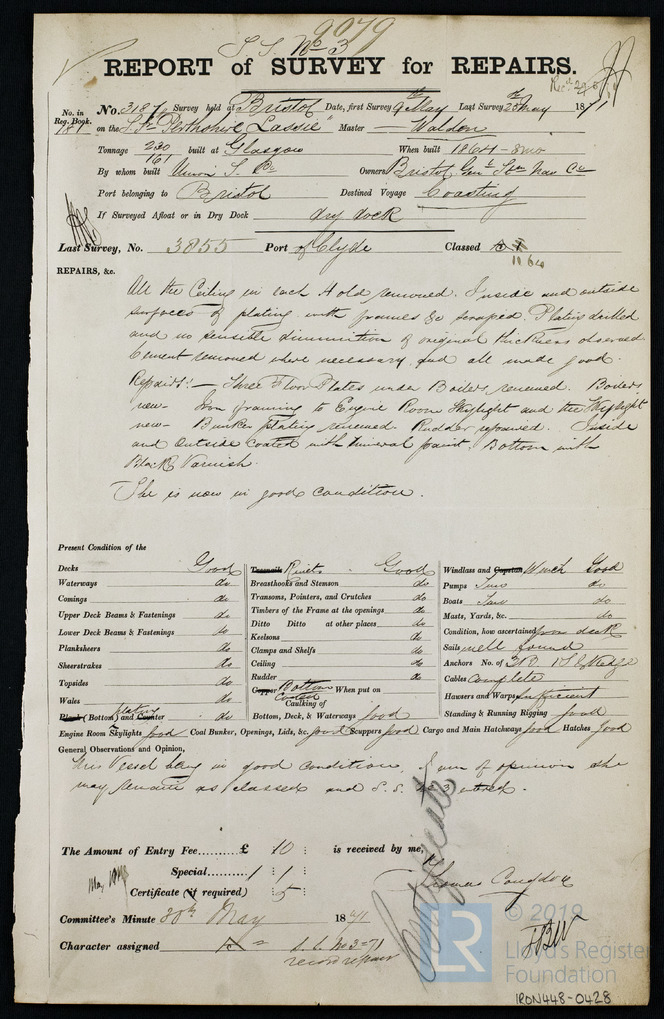 9079
S. S. No 3
REPORT of SURVEY for REPAIRS.
No. in Reg. Book. No. 3187 Survey held at Bristol Date, first Survey 9th May Last Survey 25th May 1871
781 on the S. Sr "Perthshire Lassie" Master Waldon
Tonnage 230 161 built at Glasgow When built 1864 - 3mo
By whom built Union S. Co Owners Bristol Genl Stm Nav Co
Port belonging to Bristol Destined Voyage Coasting
If Surveyed Afloat or in Dry Dock dry dock
Last Survey, No. 3855 Port of Clyde Classed
11 64
REPAIRS, &c.
All the Ceiling in each Hold removed. Inside and outside
surfaces of plating with frames &c scraped. Plating drilled
and no sensible diminution of original thickness observed
Cement removed where necessary and all made good.
Repairs:— Three Floor Plates under Boilers renewed. Boilers
new. Iron framing to Engine Room Skylight and the Skylight
new. Bunker plating renewed. Rudder repaired. Inside
and outside coated with mineral paint. Bottom with
Black Varnish.
She is now in good condition.
Present Condition of the
Decks Good
Waterways do
Comings do
Upper Deck Beams & Fastenings do
Lower Deck Beams & Fastenings do
Planksheers do
Sheerstrakes do
Topsides do
Wales do
Plank (Bottom) and Counter plating do
Treenails Rivets Good
Breasthooks and Stemson do
Transoms, Pointers, and Crutches do
Timbers of the Frame at the openings do
Ditto Ditto at other places do
Keelsons do
Clamps and Shelfs do
Ceiling do
Rudder do
Copper Bottom Coated When put on
Caulking of
Bottom, Deck, & Waterways good
Windlass and Capstan Winch Good
Pumps Two do
Boats Two do
Masts, Yards, &c. do
Condition, how ascertained from deck
Sails well found
Anchors No. of 3 B. 1 S & Kedge
Cables Complete
Hawsers and Warps sufficient
Standing & Running Rigging good
Engine Room Skylights good Coal Bunker, Openings, Lids, &c. good Scuppers good Cargo and Main Hatchways good Hatches good
General Observations and Opinion,
This Vessel being in good condition, I am of opinion she
may remain as classed and S.S. No 3 entered.
Certificate
The Amount of Entry Fee.......... £ 10 : is received by me,
Special.......... 1 : 1 :
Certificate (if required) : 5 :
Thomas Congdon
Committee's Minute 30th May 1871
Character assigned S.S. No 3-71
record repairs
© 2019
LR
Lloyd's Register
Foundation
IRON448-0428